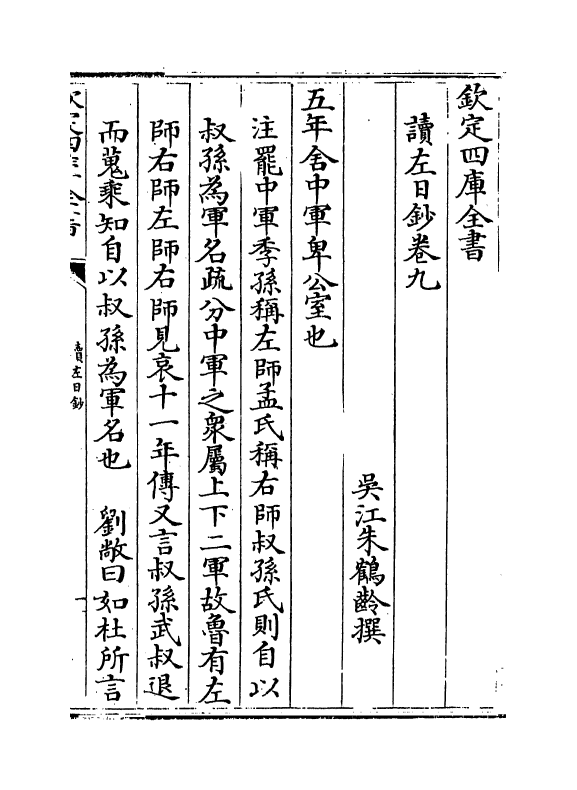 欽定四庫全書
讀左日鈔卷九
吳江朱鶴齡撰
五年舍中軍卑公室也
注罷中軍季孫稱左師孟氏稱右師叔孫氏則自以
叔孫為軍名疏分中軍之衆屬上下二軍故魯有左
師右師左師右師見哀十一年傳又言叔孫武叔退
而蒐乘知自以叔孫為軍名也　劉敞曰如杜所言
欽定四庫全書
讀左日鈔
一